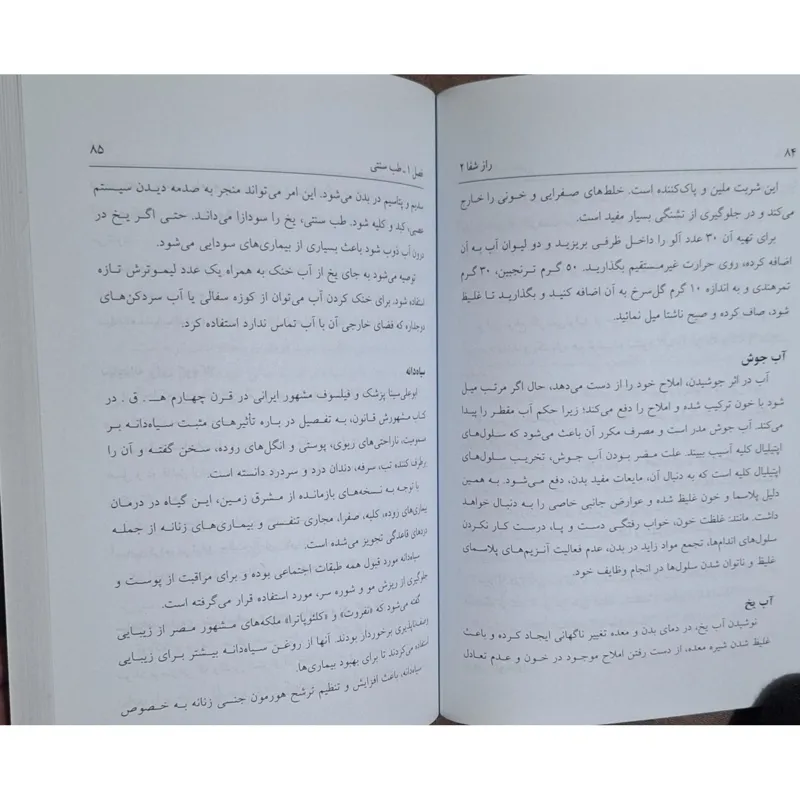 ۸۴
راز شفا ۲
این شربت ملین و پاک‌کننده است. خلط‌های صفرایی و خونی را خارج
می‌کند و در جلوگیری از تشنگی بسیار مفید است.
برای تهیه آن ۳۰ عدد آلو را داخل ظرفی بریزید و دو لیوان آب به آن
اضافه کرده، روی حرارت غیرمستقیم بگذارید. ۵۰ گرم ترنجبین، ۳۰ گرم
تمرهندی و به اندازه ۱۰ گرم گل‌سرخ به آن اضافه کنید و بگذارید تا غلیظ
شود، صاف کرده و صبح ناشتا میل نمائید.
آب جوش
آب در اثر جوشیدن، املاح خود را از دست می‌دهد، حال اگر مرتب میل
شود با خون ترکیب شده و املاح را دفع می‌کند؛ زیرا حکم آب مقطر را پیدا
می‌کند. آب جوش مدر است و مصرف مکرر آن باعث می‌شود که سلول‌های
اپتیلیال کلیه آسیب ببیند. علت مضر بودن آب جوش، تخریب سلول‌های
اپتیلیال کلیه است که به دنبال آن، مایعات مفید بدن، دفع می‌شود. به همین
دلیل پلاسما و خون غلیظ شده و عوارض جانبی خاصی را به دنبال خواهد
داشت. مانند: غلظت خون، خواب رفتگی دست و پا، درست کار نکردن
سلول‌های اندام‌ها، تجمع مواد زاید در بدن، عدم فعالیت آنزیم‌های پلاسمای
غلیظ و ناتوان شدن سلول‌ها در انجام وظایف خود.
آب یخ
نوشیدن آب یخ، در دمای بدن و معده تغییر ناگهانی ایجاد کرده و باعث
غلیظ شدن شیره معده، از دست رفتن املاح موجود در خون و عدم تعادل
فصل ۱ ـ طب سنتی
۸۵
سدیم و پتاسیم در بدن می‌شود. این امر می‌تواند منجر به صدمه دیدن سیستم
عصبی، کبد و کلیه شود. طب سنتی، یخ را سودازا می‌داند. حتی اگر یخ در
درون آب ذوب شود باعث بسیاری از بیماری‌های سودایی می‌شود.
توصیه می‌شود به جای یخ از آب خنک به همراه یک عدد لیموترش تازه
استفاده شود. برای خنک کردن آب می‌توان از کوزه سفالی یا آب سردکن‌های
درجداره که فضای خارجی آن با آب تماس ندارد استفاده کرد.
سیاه‌دانه
ابوعلی‌سینا پزشک و فیلسوف مشهور ایرانی در قرن چهارم هـ . ق . در
کتاب مشهورش قانون، به تفصیل در باره تأثیرهای مثبت سیاه‌دانه بر
عفونت، ناراحتی‌های ریوی، پوستی و انگل‌های روده، سخن گفته و آن را
برطرف کننده تب، سرفه، دندان درد و سردرد دانسته است.
با توجه به نسخه‌های بازمانده از مشرق زمین، این گیاه در درمان
بیماری‌های روده، کلیه، صفرا، مجاری تنفسی و بیماری‌های زنانه از جمله
دردهای قاعدگی تجویز می‌شده است.
سیاه‌دانه مورد قبول همه طبقات اجتماعی بوده و برای مراقبت از پوست و
جلوگیری از ریزش مو و شوره سر، مورد استفاده قرار می‌گرفته است.
گفته می‌شود که «نفروت» و «کلئوپاترا» ملکه‌های مشهور مصر از زیبایی
وصف‌ناپذیری برخوردار بودند. آنها از روغن سیاه‌دانه بیشتر برای زیبایی
استفاده می‌کردند تا برای بهبود بیماری‌ها.
سیاه‌دانه، باعث افزایش و تنظیم ترشح هورمون جنسی زنانه به خصوص